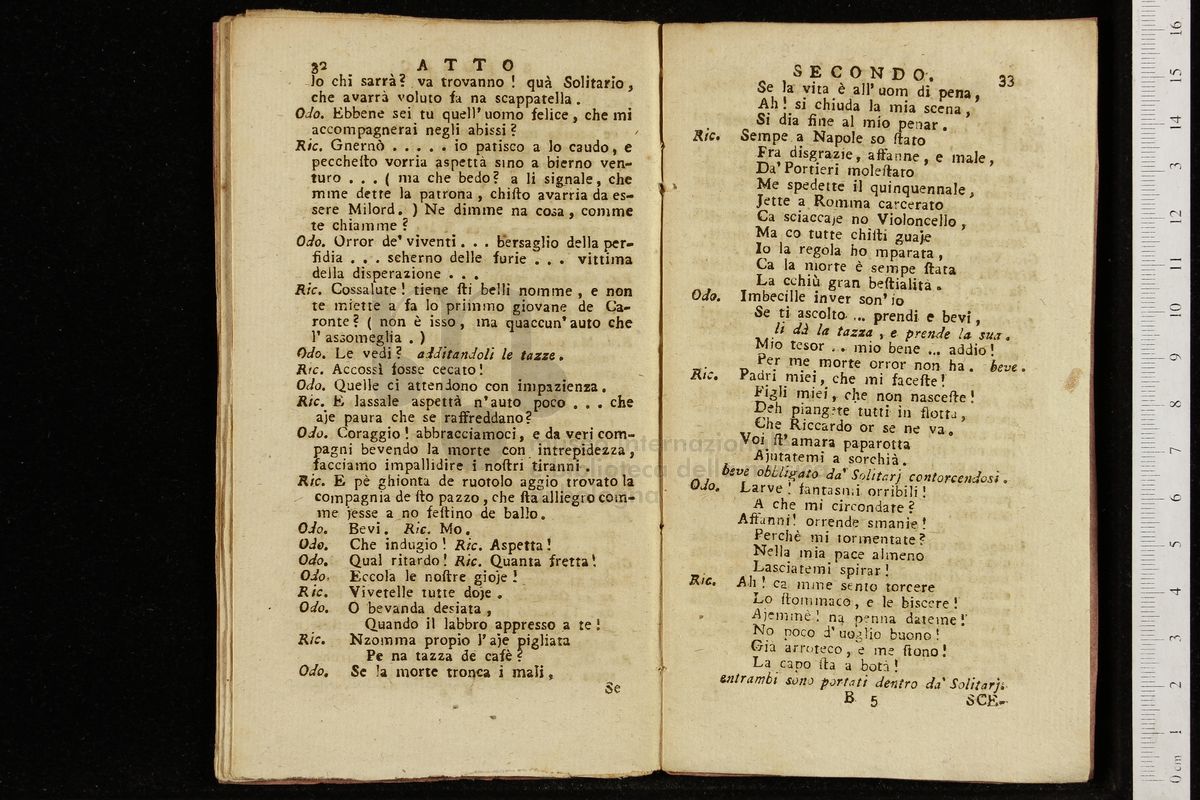 32 A T T O
lo chi sarrà? va trovanno! quà Solitario,
che avarrà voluto fa na scappatella.
Odo. Ebbene sei tu quell'uomo felice, che mi
accompagnerai negli abissi?
Ric. Gnernò ..... io patisco a lo caudo, e
pecchesto vorria aspettà sino a bierno ven-
turo ... ( ma che bedo? a li signale, che
mme dette la patrona, chisto avarria da es-
sere Milord. ) Ne dimme na cosa, comme
te chiamme?
Odo. Orror de' viventi... bersaglio della per-
fidia ... scherno delle furie ... vittima
della disperazione ...
Ric. Cossalute! tiene sti belli nomme, e non
te miette a fa lo priimmo giovane de Ca-
ronte? ( non è isso, ma quaccun'auto che
l'assomeglia. )
Odo. Le vedi? additandoli le tazze.
Ric. Accossì fosse cecato!
Odo. Quelle ci attendono con impazienza.
Ric. E lassale aspettà n'auto poco ... che
aje paura che se raffreddano?
Odo. Coraggio! abbracciamoci, e da veri com-
pagni bevendo la morte con intrepidezza,
facciamo impallidire i nostri tiranni.
Ric. E pè ghionta de ruotolo aggio trovato la
compagnia de sto pazzo, che sta alliegro com-
me jesse a no festino de ballo.
Odo. Bevi. Ric. Mo.
Odo. Che indugio! Ric. Aspetta!
Odo. Qual ritardo! Ric. Quanta fretta!
Odo. Eccola le nostre gioje!
Ric. Vivetelle tutte doje.
Odo. O bevanda desiata,
Quando il labbro appresso a te!
Ric. Nzomma propio l'aje pigliata
Pe na tazza de cafè?
Odo. Se la morte tronca i mali,
Se
SECONDO. 33
Se la vita è all'uom di pena,
Ah! si chiuda la mia scena,
Si dia fine al mio penar.
Ric. Sempe a Napole so stato
Fra disgrazie, affanne, e male,
Da' Portieri molestato
Me spedette il quinquennale,
Jette a Romma carcerato
Ca sciaccaje no Violoncello,
Ma co tutte chisti guaje
Io la regola ho mparata,
Ca la morte è sempe stata
La cchiù gran bestialità.
Odo. Imbecille inver son'io
Se ti ascolto ... prendi e bevi,
li dà la tazza, e prende la sua.
Mio tesor .. mio bene ... addio!
Per me morte orror non ha. beve.
Ric. Padri miei, che mi faceste!
Figli miei, che non nasceste!
Deh piangete tutti in flotta,
Che Riccardo or se ne va.
Voi st'amara paparotta
Ajutatemi a sorchià.
beve obbligato da' Solitarj contorcendosi.
Odo. Larve! fantasmi orribili!
A che mi circondate?
Affanni! orrende smanie!
Perchè mi tormentate?
Nella mia pace almeno
Lasciatemi spirar!
Ric. Ah! ca mme sento torcere
Lo stommaco, e le biscere!
Ajemmè! na penna dateme!
No poco d'uoglio buono!
Gia arroteco, e me stono!
La capo sta a botà!
entrambi sono portati dentro da' Solitarj.
B 5 SCE-